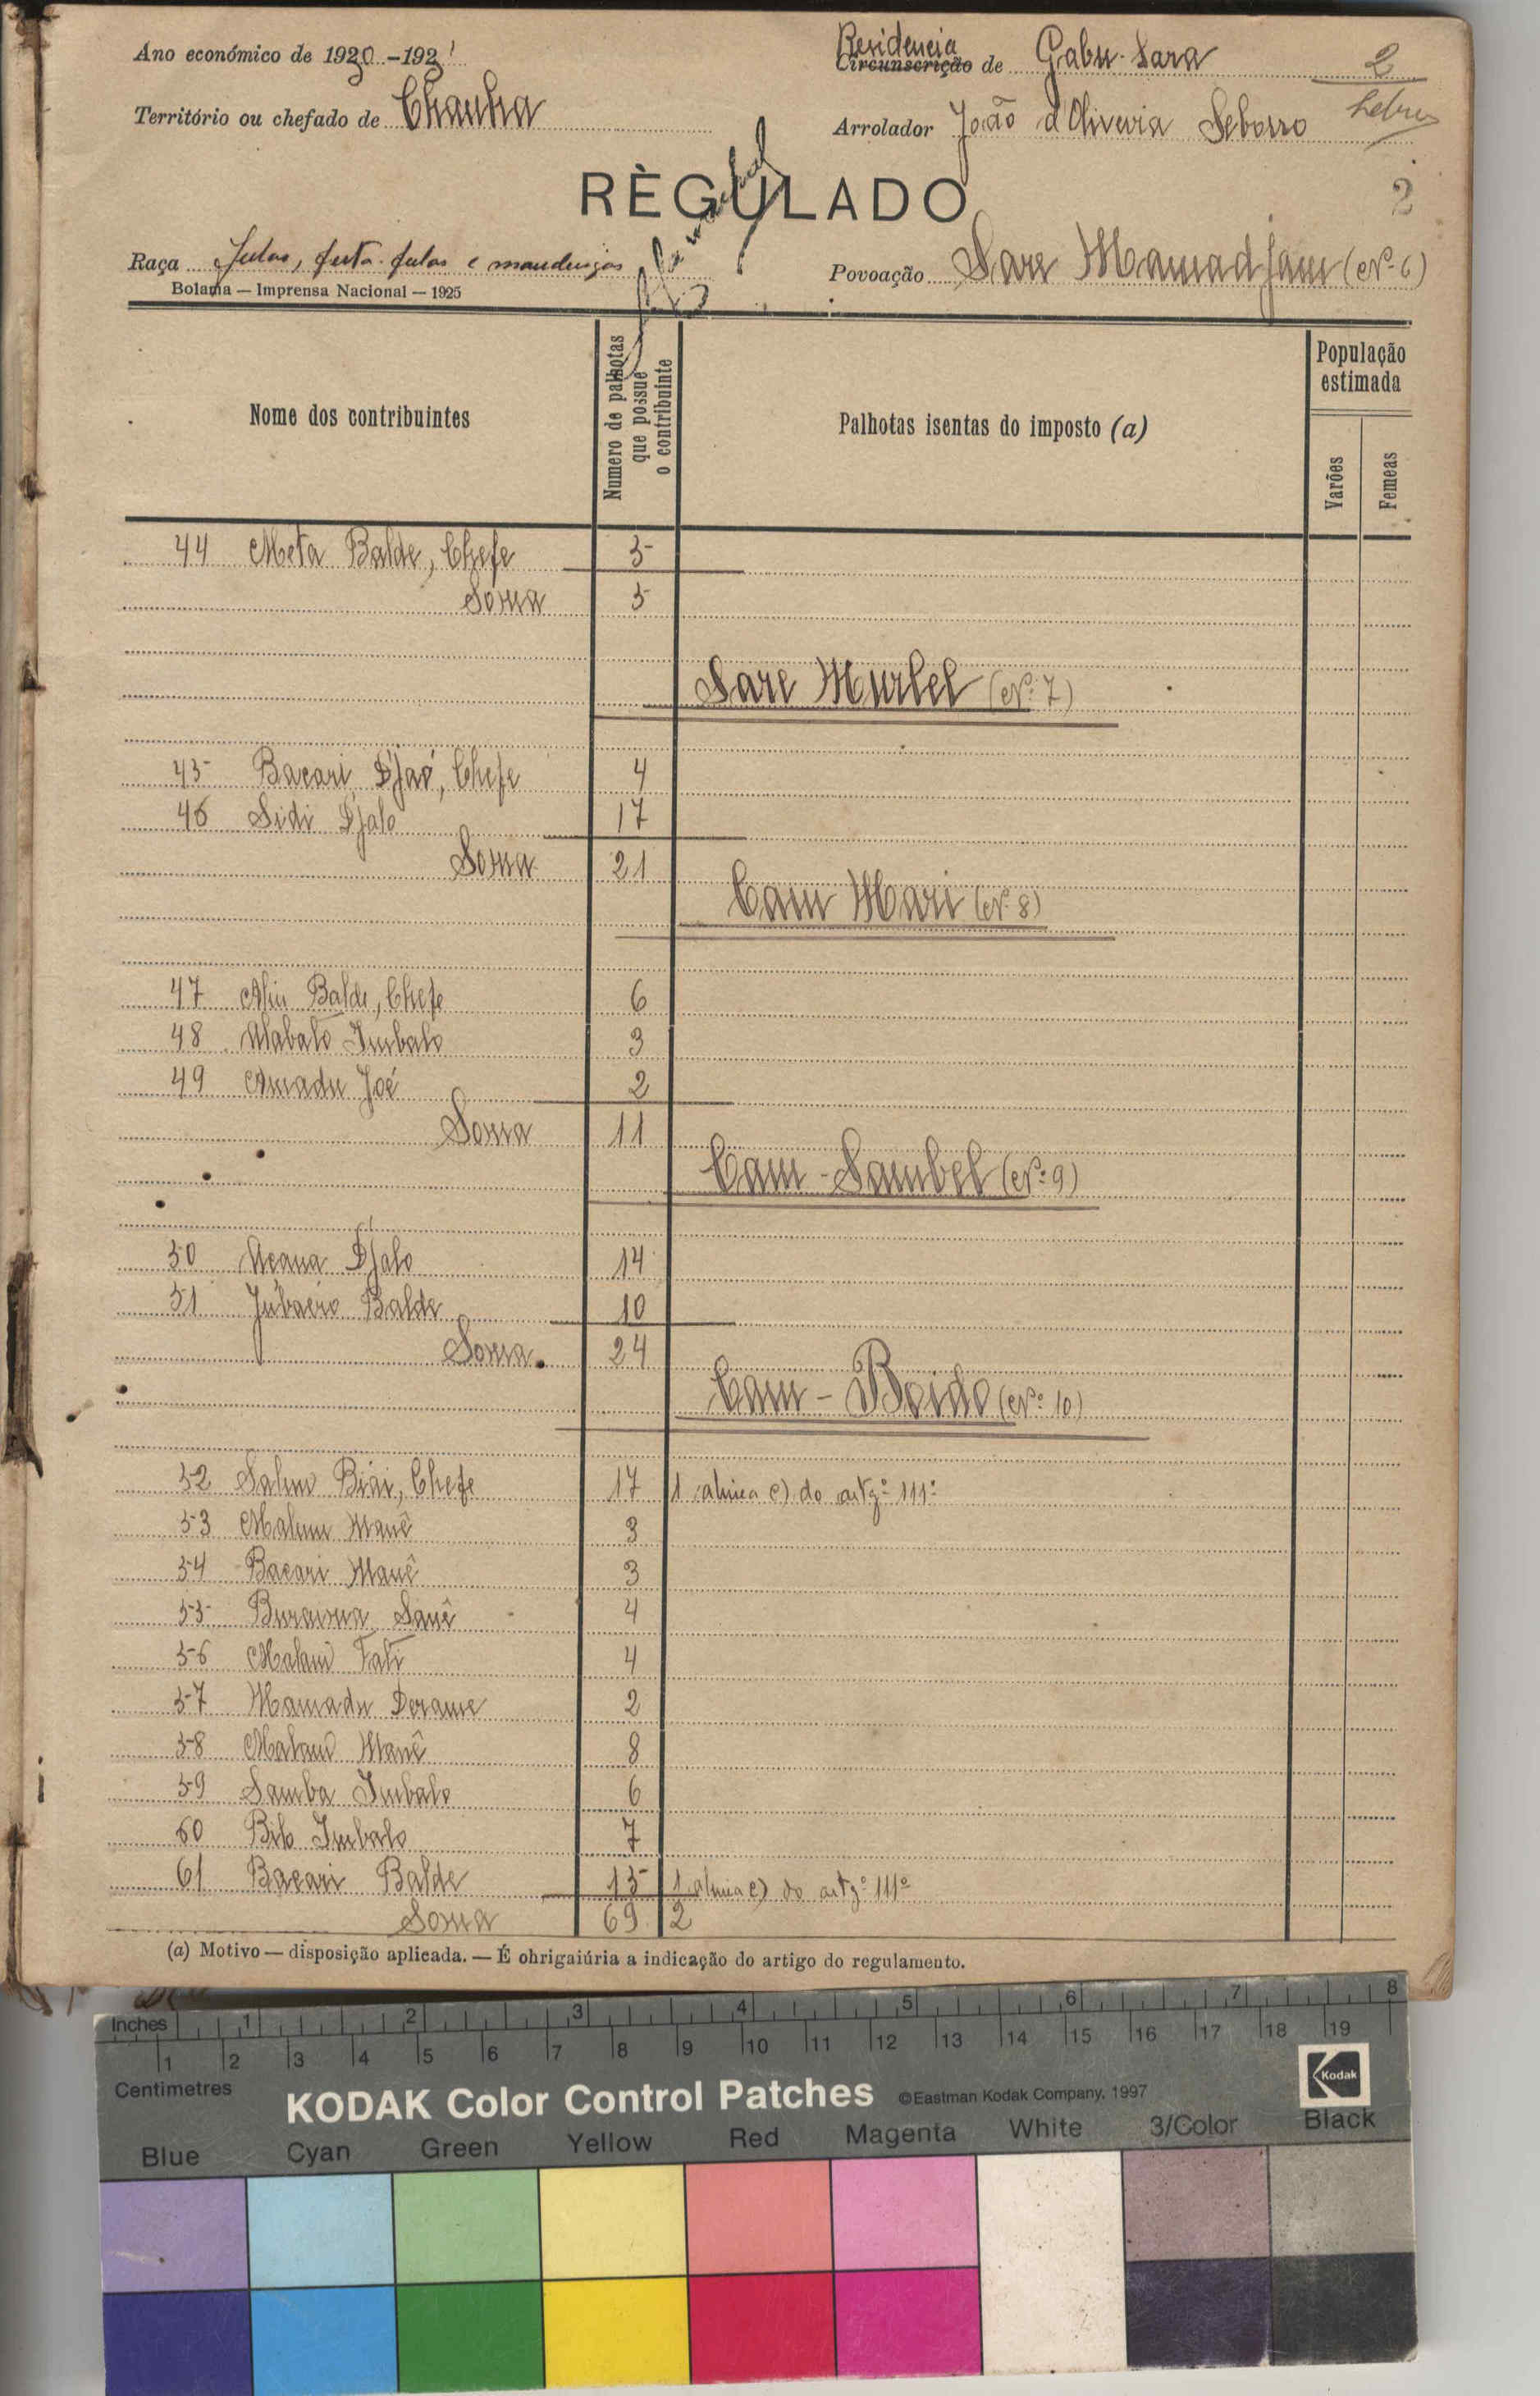 Ano económico de 1930-1931
Residencia
Circunscrição de Gabu-Sara
2
Território ou chefado de Chanha
Arrolador João d'Oliveira
RÈGULADO
2
Raça Fulas, futa-fulas e mandingas
Povoação Sare Mamadjam (Nº 6)
Bolama — Imprensa Nacional — 1925
Nome dos contribuintes
Numero de palhotas que possue o contribuinte
Palhotas isentas do imposto (a)
População estimada
Varões
Femeas
44 Meta Balde, Chefe 5
Soma 5
Sare Murbel (Nº 7)
45 Bacari Djaó, Chefe 4
46 Sidi Djalo 17
Soma 21
Cam Mari (Nº 8)
47 Aliu Balde, Chefe 6
48 Mabalo Imbalo 3
49 Amadu Joé 2
Soma 11
Cam-Sambel (Nº 9)
50 Djalo 14
51 Balde 10
Soma 24
Cam-Boido (Nº 10)
52 Biai, Chefe 17 1 alinea c) do artgº 111º
53 Malam Manê 3
54 Bacari Manê 3
55 Sanê 4
56 Malam Fati 4
57 Mamadu Derame 2
58 Malam Manê 8
59 Samba Imbalo 6
60 Bilo Imbalo 7
61 Bacari Balde 15 1 alinea c) do artgº 111º
Soma 69 2
(a) Motivo — disposição aplicada. — É ohrigaiúria a indicação do artigo do regulamento.
Inches 1 2 3 4 5 6 7 8
1 2 3 4 5 6 7 8 9 10 11 12 13 14 15 16 17 18 19
Centimetres
KODAK Color Control Patches ©Eastman Kodak Company, 1997
Kodak
Blue Cyan Green Yellow Red Magenta White 3/Color Black